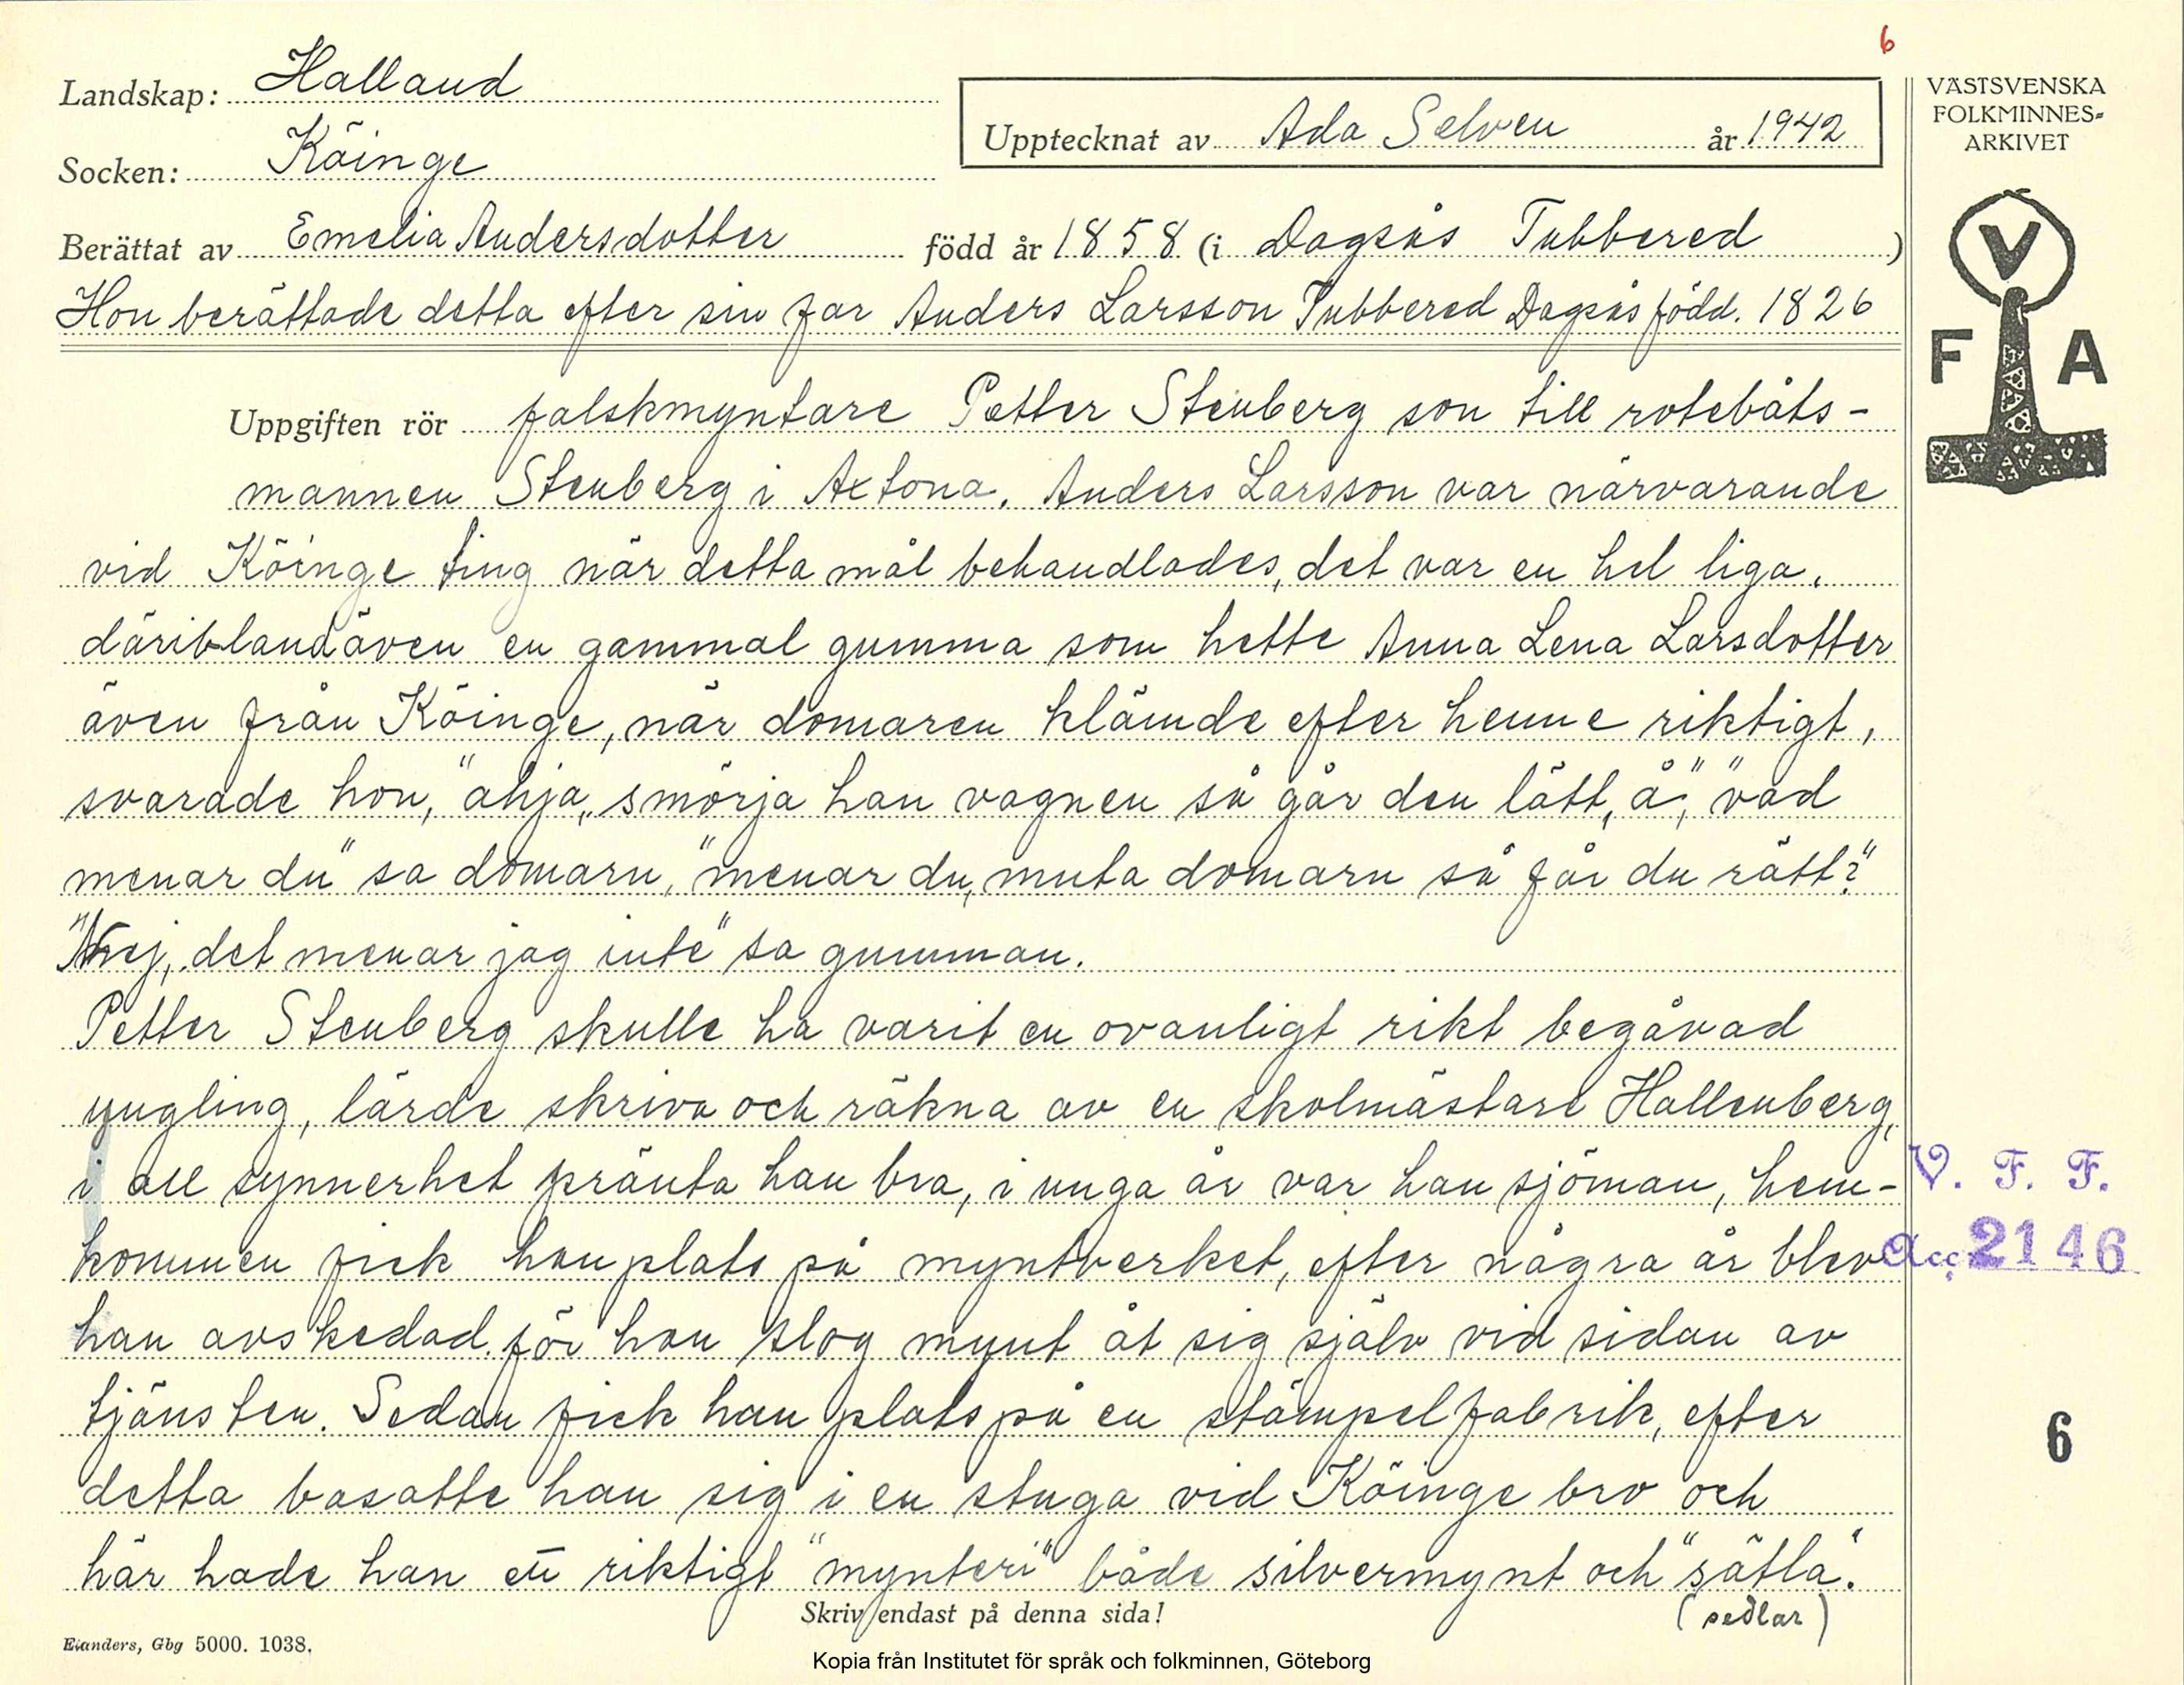 6
Landskap: Halland
Socken: Köinge
Upptecknat av Ada Selven år 1942
VÄSTSVENSKA
FOLKMINNES-
ARKIVET
Berättat av Emelia Andersdotter född år 1858 (i Dagsås Tubbered )
Hon berättade detta efter sin far Anders Larsson Tubbered Dagsås född. 1826
V
F A
Uppgiften rör falskmyntare Petter Stenberg son till rotebåts-
mannen Stenberg i Axtona. Anders Larsson var närvarande
vid Köinge ting när detta mål behandlades, det var en hel liga,
däribland även en gammal gumma som hette Anna Lena Larsdotter
även från Köinge, när domaren klämde efter henne riktigt,
svarade hon, "åhja, smörja han vagnen så går den lätt, å", "vad
menar du" sa domarn, "menar du, muta domarn så får du rätt?"
"Nej, det menar jag inte" sa gumman.
Petter Stenberg skulle ha varit en ovanligt rikt begåvad
yngling, lärde skriva och räkna av en skolmästare Hallenberg,
i all synnerhet pränta han bra, i unga år var han sjöman, hem-
kommen fick han plats på myntverket, efter några år blev
han avskedad för han slog mynt åt sig själv vid sidan av
tjänsten. Sedan fick han plats på en stämpelfabrik, efter
detta bosatte han sig i en stuga vid Köinge bro och
här hade han ett riktigt "mynteri" både silvermynt och "sätla".
(sedlar)
V. F. F.
Acc. 2146
6
Skriv endast på denna sida!
Elanders, Gbg 5000. 1038.
Kopia från Institutet för språk och folkminnen, Göteborg